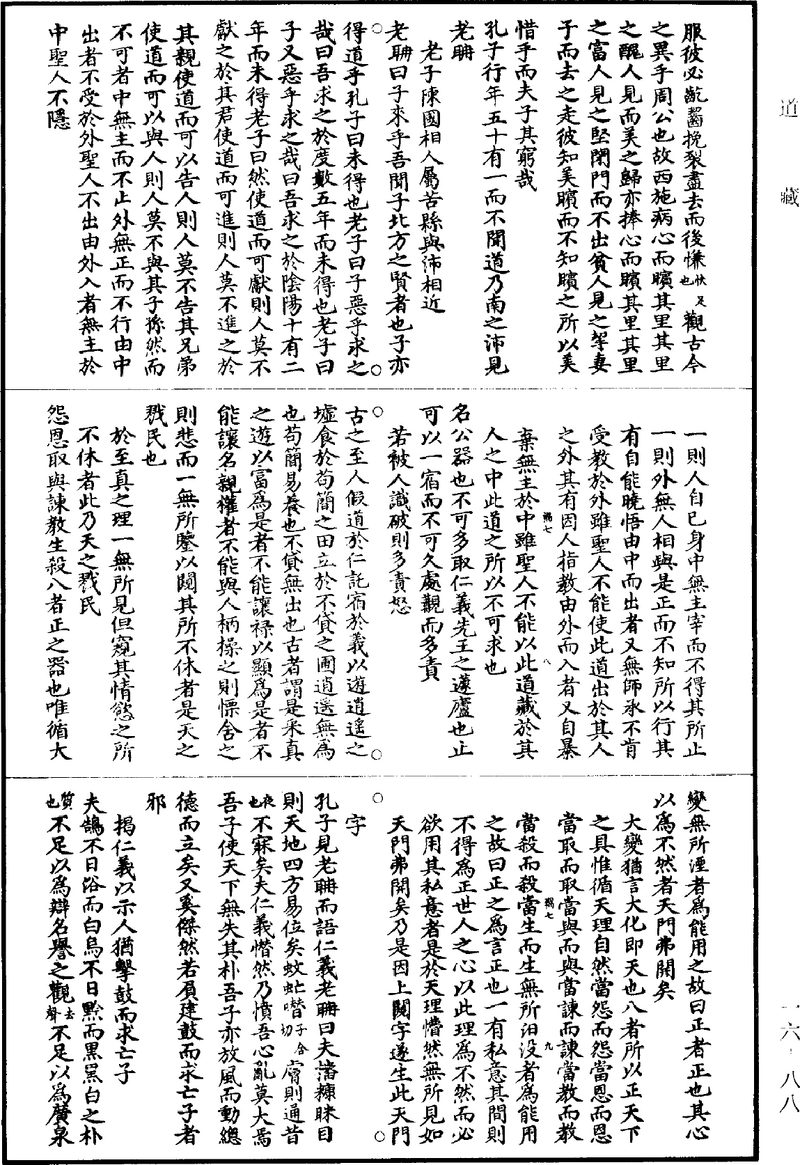 道藏
一六·八八
服彼必齕齧挽裂盡去而後慊快足也觀古今
之異乎周公也故西施病心而矉其里其里
之醜人見而美之歸亦捧心而矉其里其里
之富人見之堅閉門而不出貧人見之挈妻
子而去之走彼知美矉而不知矉之所以美
惜乎而夫子其窮哉
孔子行年五十有一而不聞道乃南之沛見
老聃
老子陳國相人屬苦縣與沛相近
老聃曰子來乎吾聞子北方之賢者也子亦
○得道乎孔子曰未得也老子曰子惡乎求之○
哉曰吾求之於度數五年而未得也老子曰
子又惡乎求之哉曰吾求之於陰陽十有二
年而未得老子曰然使道而可獻則人莫不
獻之於其君使道而可進則人莫不進之於
其親使道而可以告人則人莫不告其兄弟
使道而可以與人則人莫不與其子孫然而
不可者中無主而不止外無正而不行由中
出者不受於外聖人不出由外入者無主於
中聖人不隱
一則人自已身中無主宰而不得其所止
一則外無人相與是正而不知所以行其
有自能曉悟由中而出者又無師承不肯
受教於外雖聖人不能使此道出於其人
之外其有因人指教由外而入者又自暴
棄無主於中雖聖人不能以此道藏於其
人之中此道之所以不可求也
名公器也不可多取仁義先王之蘧廬也止
可以一宿而不可久處觀而多責
若被人識破則多責怒
○古之至人假道於仁託宿於義以遊逍遥之○
墟食於苟簡之田立於不貸之圃逍遥無為
也苟簡易養也不貸無出也古者謂是采真
之遊以富爲是者不能讓祿以顯爲是者不
能讓名親權者不能與人柄操之則慄舍之
則悲而一無所鑒以闚其所不休者是天之
戮民也
於至真之理一無所見但窺其情慾之所
不休者此乃天之戮民
怨恩取與諫教生殺八者正之器也唯循大
變無所湮者爲能用之故曰正者正也其心
以爲不然者天門弗開矣
大變猶言大化即天也八者所以正天下
之具惟循天理自然當怨而怨當恩而恩
當取而取當與而與當諫而諫當教而教
當殺而殺當生而生無所汩没者爲能用
之故曰正之爲言正也一有私意其間則
不得爲正世人之心以此理爲不然而必
欲用其私意者是於天理懵然無所見如
天門弗開矣乃是因上闚字遂生此天門
○字○
孔子見老聃而語仁義老聃曰夫播糠眯目
則天地四方易位矣蚊虻噆子合切膚則通昔
夜也不寐矣夫仁義憯然乃憤吾心亂莫大焉
吾子使天下無失其朴吾子亦放風而動總
德而立矣又奚傑然若負建鼓而求亡子者
邪
揭仁義以示人猶擊鼓而求亡子
夫鵠不日浴而白烏不日黔而黑黑白之朴
質也不足以爲辯名譽之觀去聲不足以爲廣泉